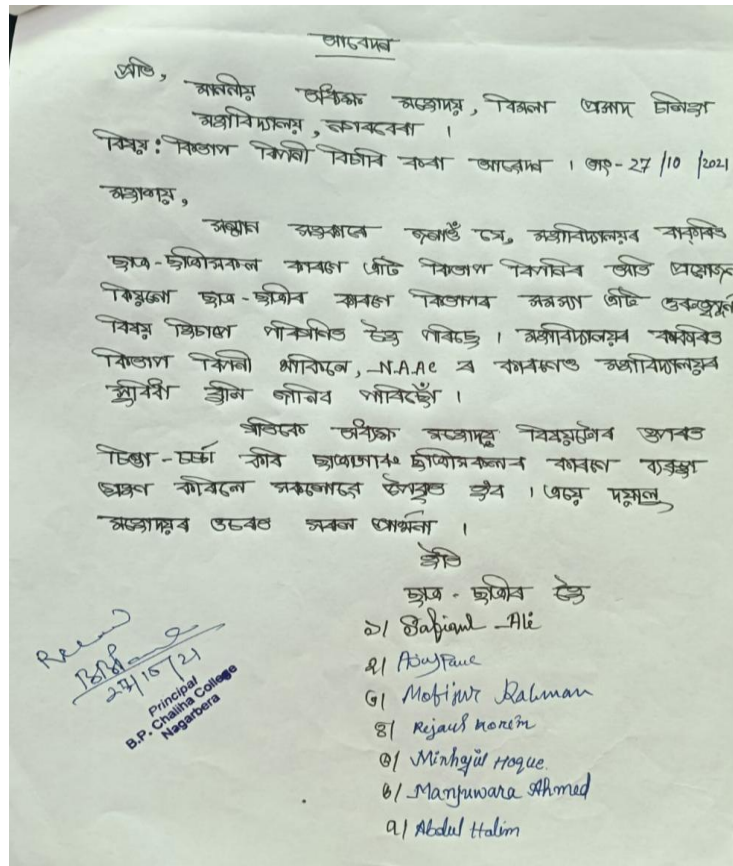 আবেদন
প্ৰতি,
মাননীয় অধ্যক্ষ মহোদয়, বিমলা প্ৰসাদ চলিহা
মহাবিদ্যালয়, নগৰবেৰা ।
বিষয় : কিতাপ বিপনী বিচাৰি কৰা আবেদন । তাং - 27/10/2021
মহাশয়,
সন্মান সহকাৰে জনাওঁ যে, মহাবিদ্যালয়ৰ
ছাত্ৰ-ছাত্ৰীসকল কাৰণে এটি কিতাপ বিপনিৰ অতি প্ৰয়োজন
কিয়নো ছাত্ৰ-ছাত্ৰীৰ কাৰণে কিতাপৰ সমস্যা এটি গুৰুত্বপূৰ্ণ
বিষয় হিচাপে পৰিগণিত হৈ পৰিছে । মহাবিদ্যালয়ৰ
কিতাপ বিপনী থাকিলে, N.A.Ac ৰ কাৰণেও মহাবিদ্যালয়ৰ
জানিব পাৰিছোঁ ।
অধ্যক্ষ মহোদয় বিষয়টোৰ ওপৰত
চিন্তা-চৰ্চা কৰি ছাত্ৰীসকলৰ কাৰণে ব্যৱস্থা
গ্ৰহণ কৰিলে সকলোৰে উপকৃত হ'ব । এয়ে দয়ালু
মহোদয়ৰ ওচৰত সৰল প্ৰাৰ্থনা ।
ইতি
ছাত্ৰ-ছাত্ৰীৰ হৈ
১/ Safiqul Ali
২/
৩/ Mofijur Rahman
৪/ Rejaul Korem
৫/ Minhajul Hoque
৬/ Manjuwara Ahmed
৭/ Abdul Halim
27/10/21
Principal
B.P. Chaliha College
Nagarbera